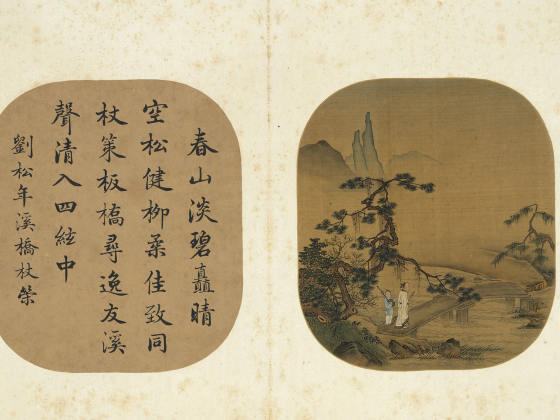 春山淡碧矗晴
空松健柳柔佳致同
杖策板橋尋逸友溪
聲清入四絃中
劉松年溪橋杖策